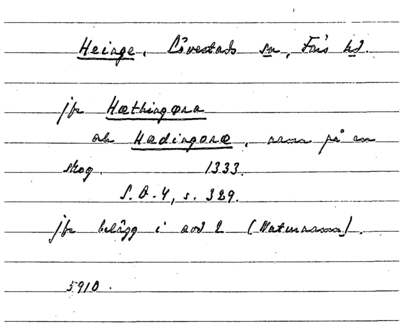 Heinge, Lövestads sn, Färs hd.
jfr Hæthingøra
och Hædingøræ, namn på en
skog. 1333.
S.D. 4, s. 329.
jfr belägg i avd 2 (Naturnamn).
5910.